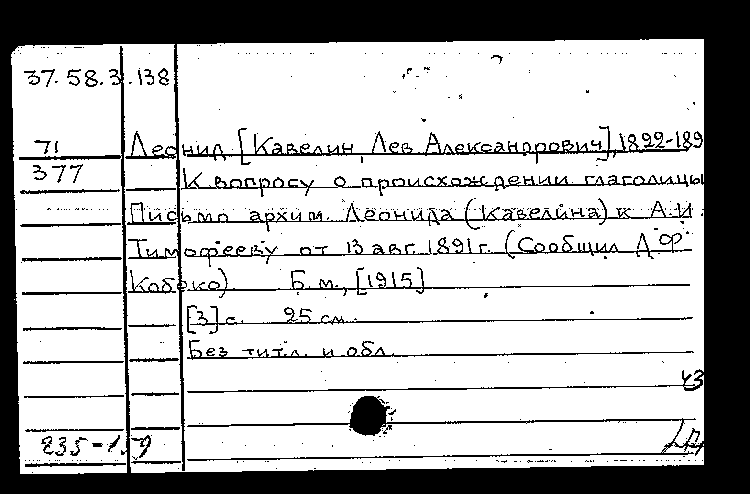 37.58.3.138
71 Леонид [Кавелин, Лев Александрович], 1822-189
377 К вопросу о происхождении глаголицы
Письмо архим. Леонида (Кавелина) к А.И.
Тимофееву от 13 авг. 1891 г. (Сообщил Д.Ф.
Кобеко) Б.м., [1915]
[3] с. 25 см.
Без тит.л. и обл.
43
235-159